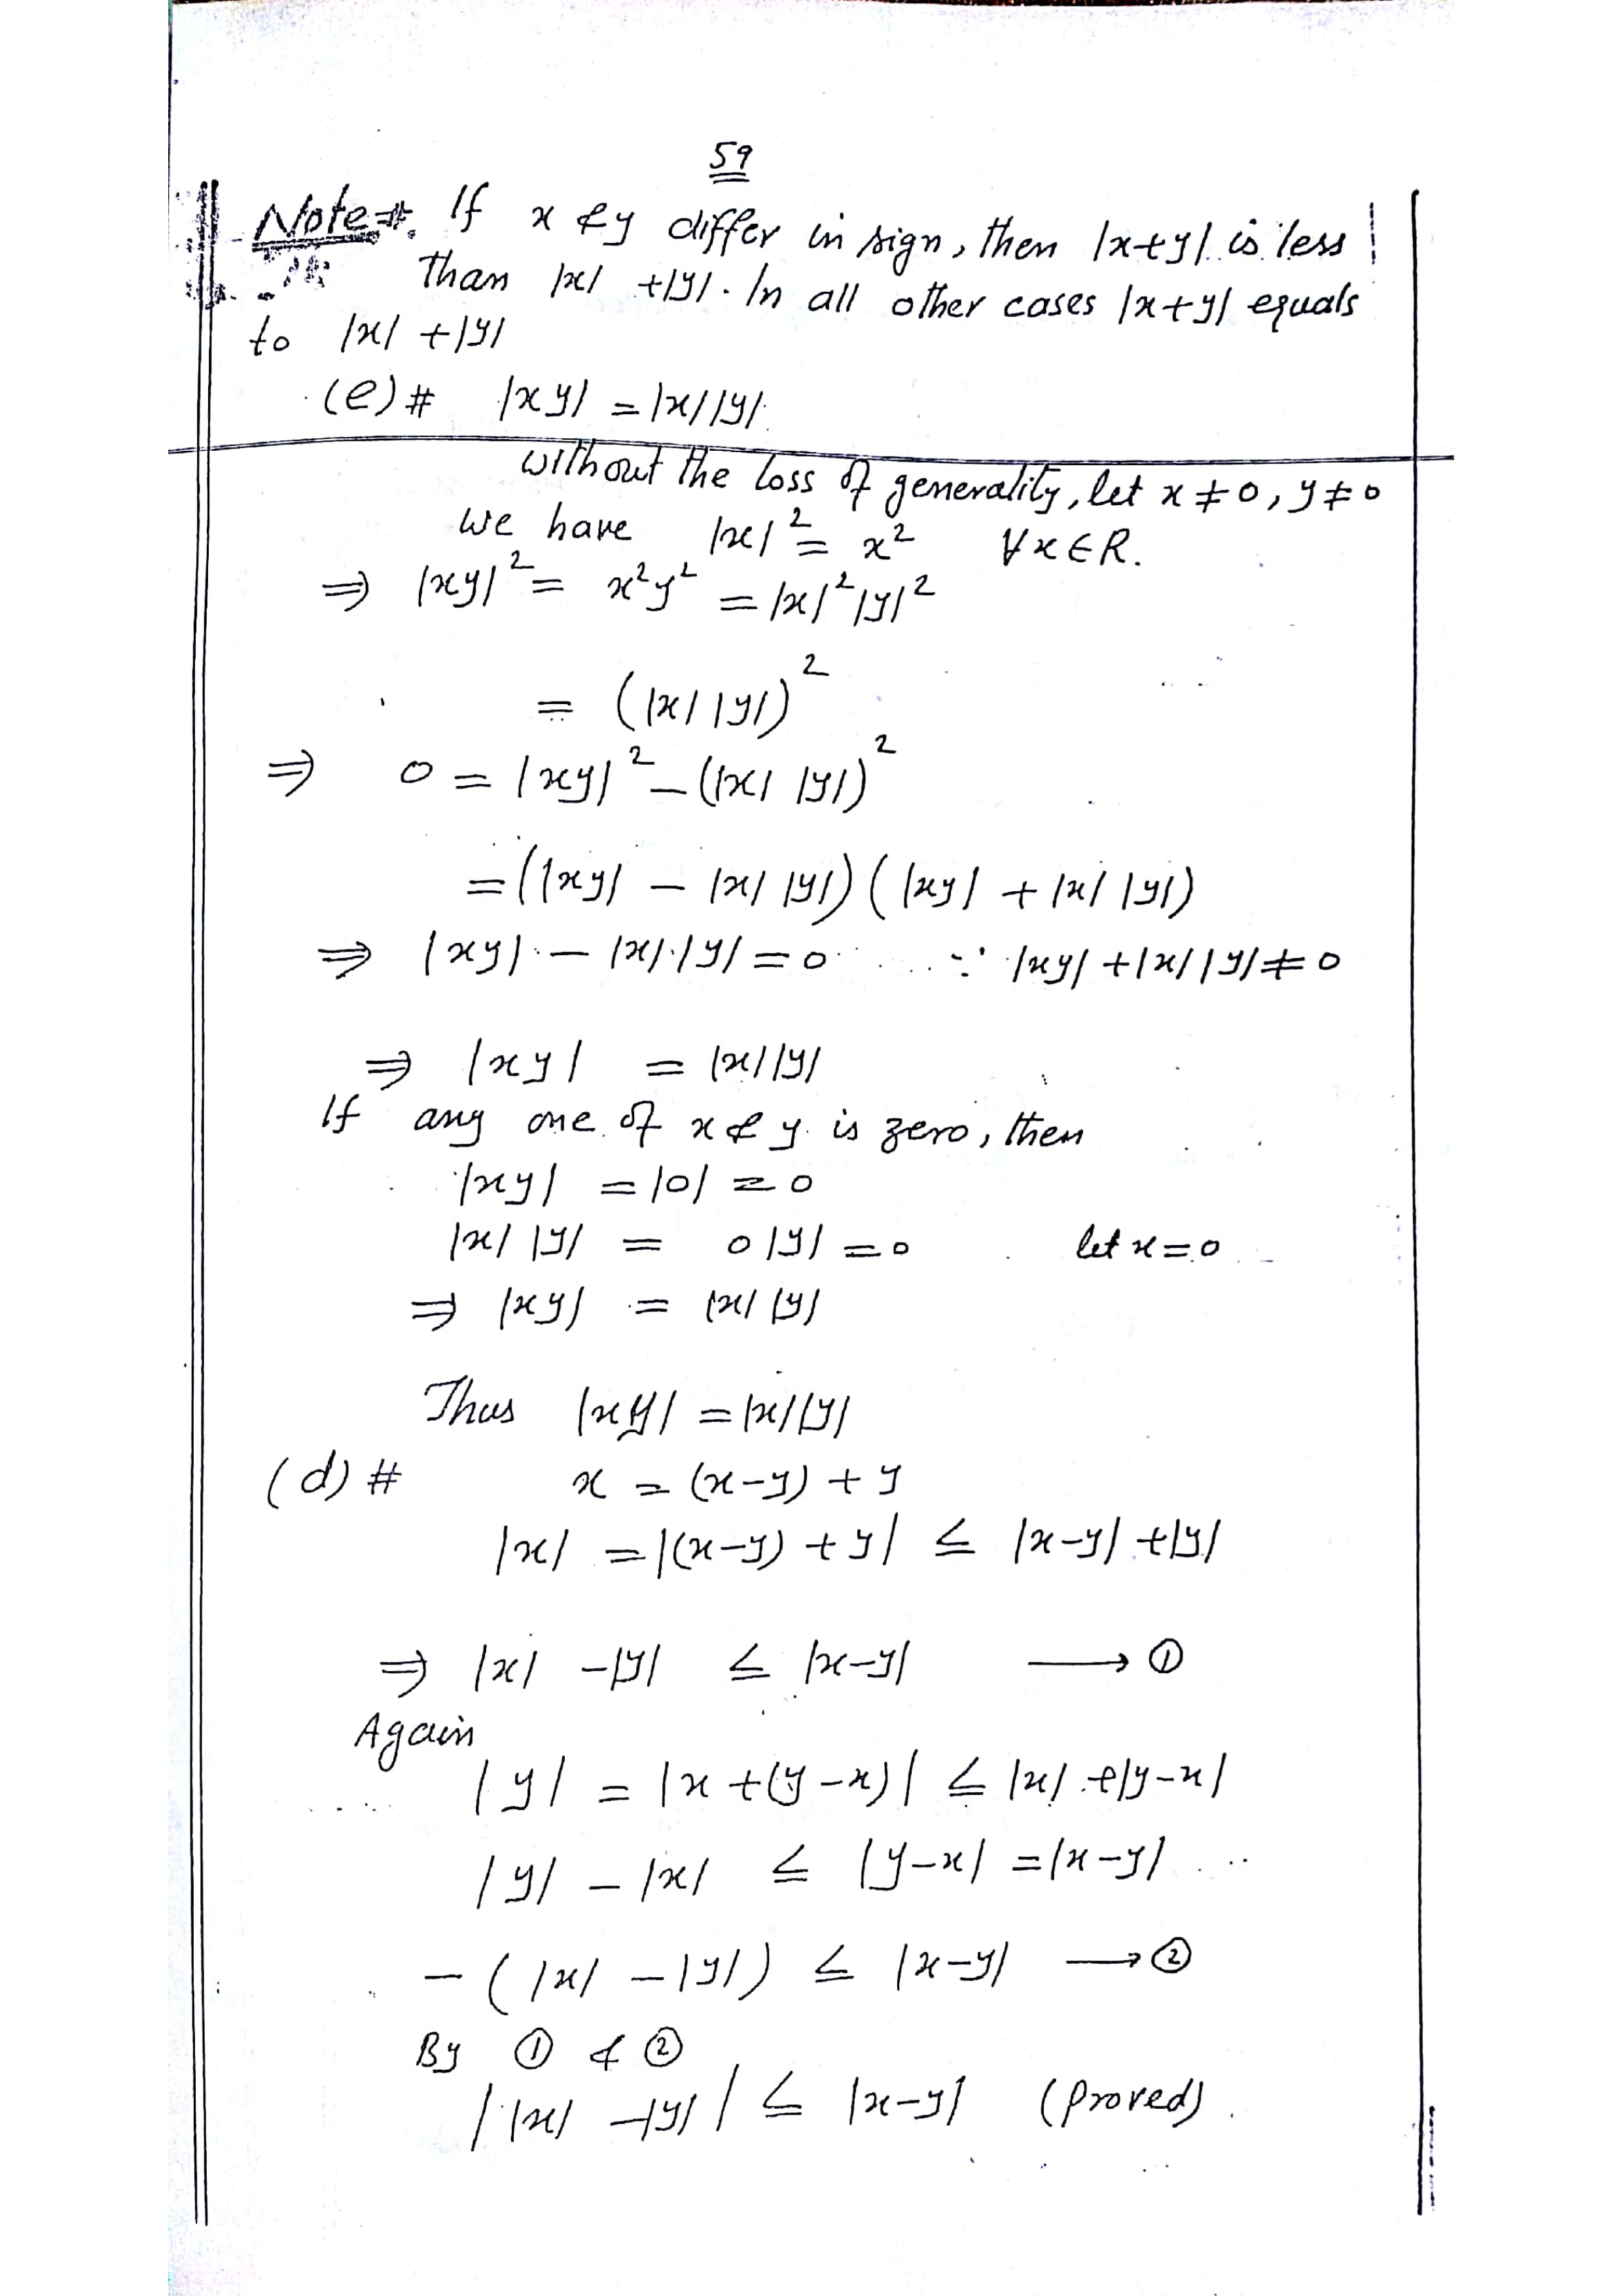 59
Note #. If x & y differ in sign, then |x+y| is less
than |x| + |y|. In all other cases |x+y| equals
to |x| + |y|
(e) # |xy| = |x| |y|.
without the loss of generality, let x ≠ 0, y ≠ 0
we have |x|² = x² ∀ x ∈ R.
⇒ |xy|² = x²y² = |x|² |y|²
= (|x| |y|)²
⇒ 0 = |xy|² − (|x| |y|)²
= (|xy| − |x| |y|) (|xy| + |x| |y|)
⇒ |xy| − |x|·|y| = 0 ∵ |xy| + |x| |y| ≠ 0
⇒ |xy| = |x| |y|
If any one of x & y is zero, then
|xy| = |0| = 0
|x| |y| = 0 |y| = 0 let x = 0
⇒ |xy| = |x| |y|
Thus |xy| = |x| |y|
(d) # x = (x−y) + y
|x| = |(x−y) + y| ≤ |x−y| + |y|
⇒ |x| − |y| ≤ |x−y| ⟶ ①
Again
|y| = |x + (y−x)| ≤ |x| + |y−x|
|y| − |x| ≤ |y−x| = |x−y|
− (|x| − |y|) ≤ |x−y| ⟶ ②
By ① & ②
| |x| − |y| | ≤ |x−y| (Proved).